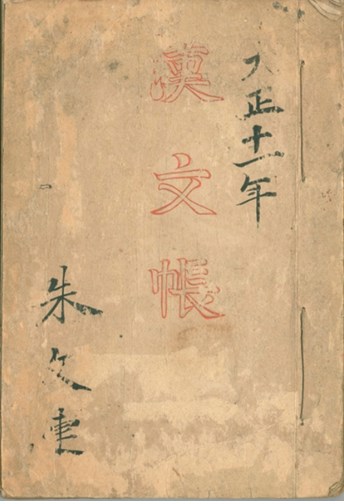 大正十一年
漢文帳
朱文